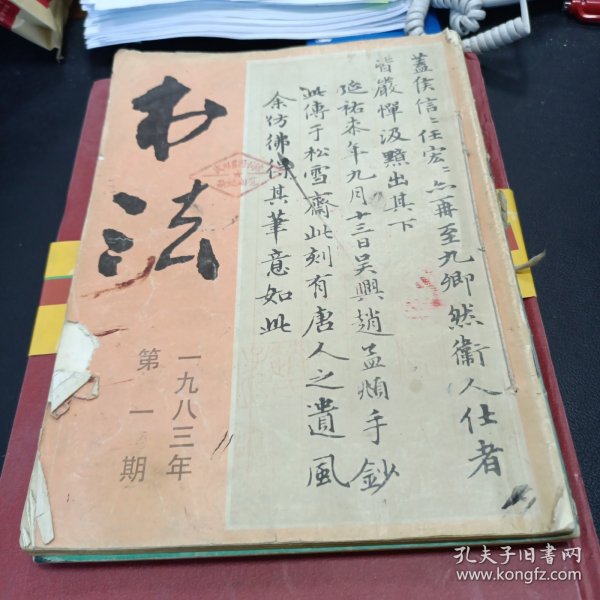 书法
一九八三年
第一期
蓋侯信信任宏宏亦再至九卿然衛人仕者
皆嚴憚汲黯出其下
延祐柒年九月十三日吴興趙孟頫手鈔
此傳于松雪齋此刻有唐人之遺風
余仿彿得其筆意如此
孔夫子旧书网
www.kongfz.com